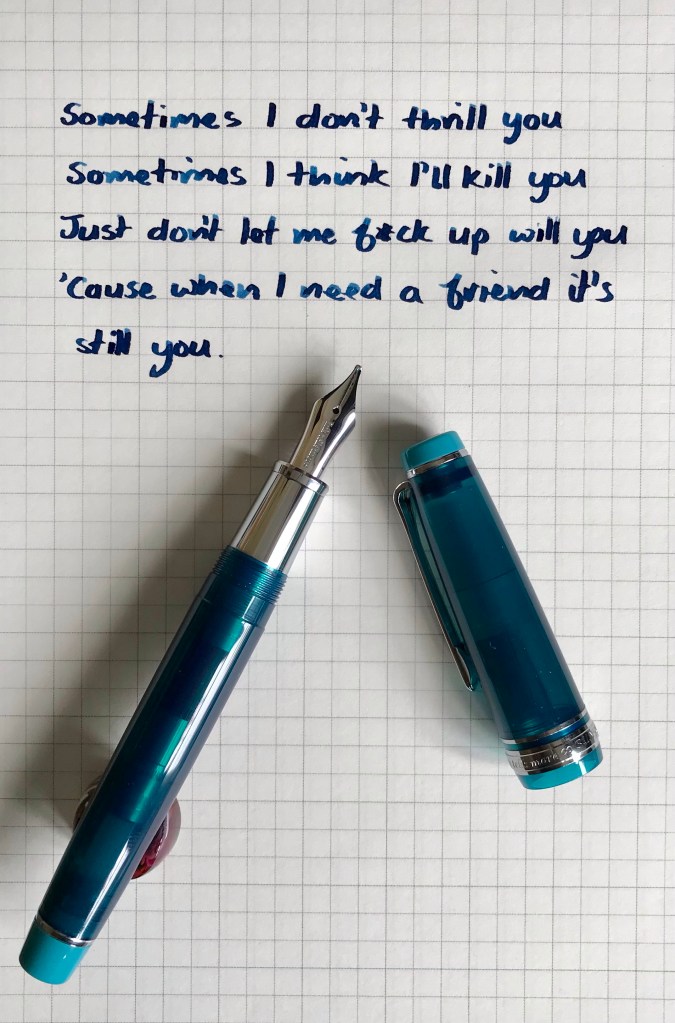 Sometimes I don't thrill you
Sometimes I think I'll kill you
Just don't let me f*ck up will you
'Cause when I need a friend it's
still you.
more